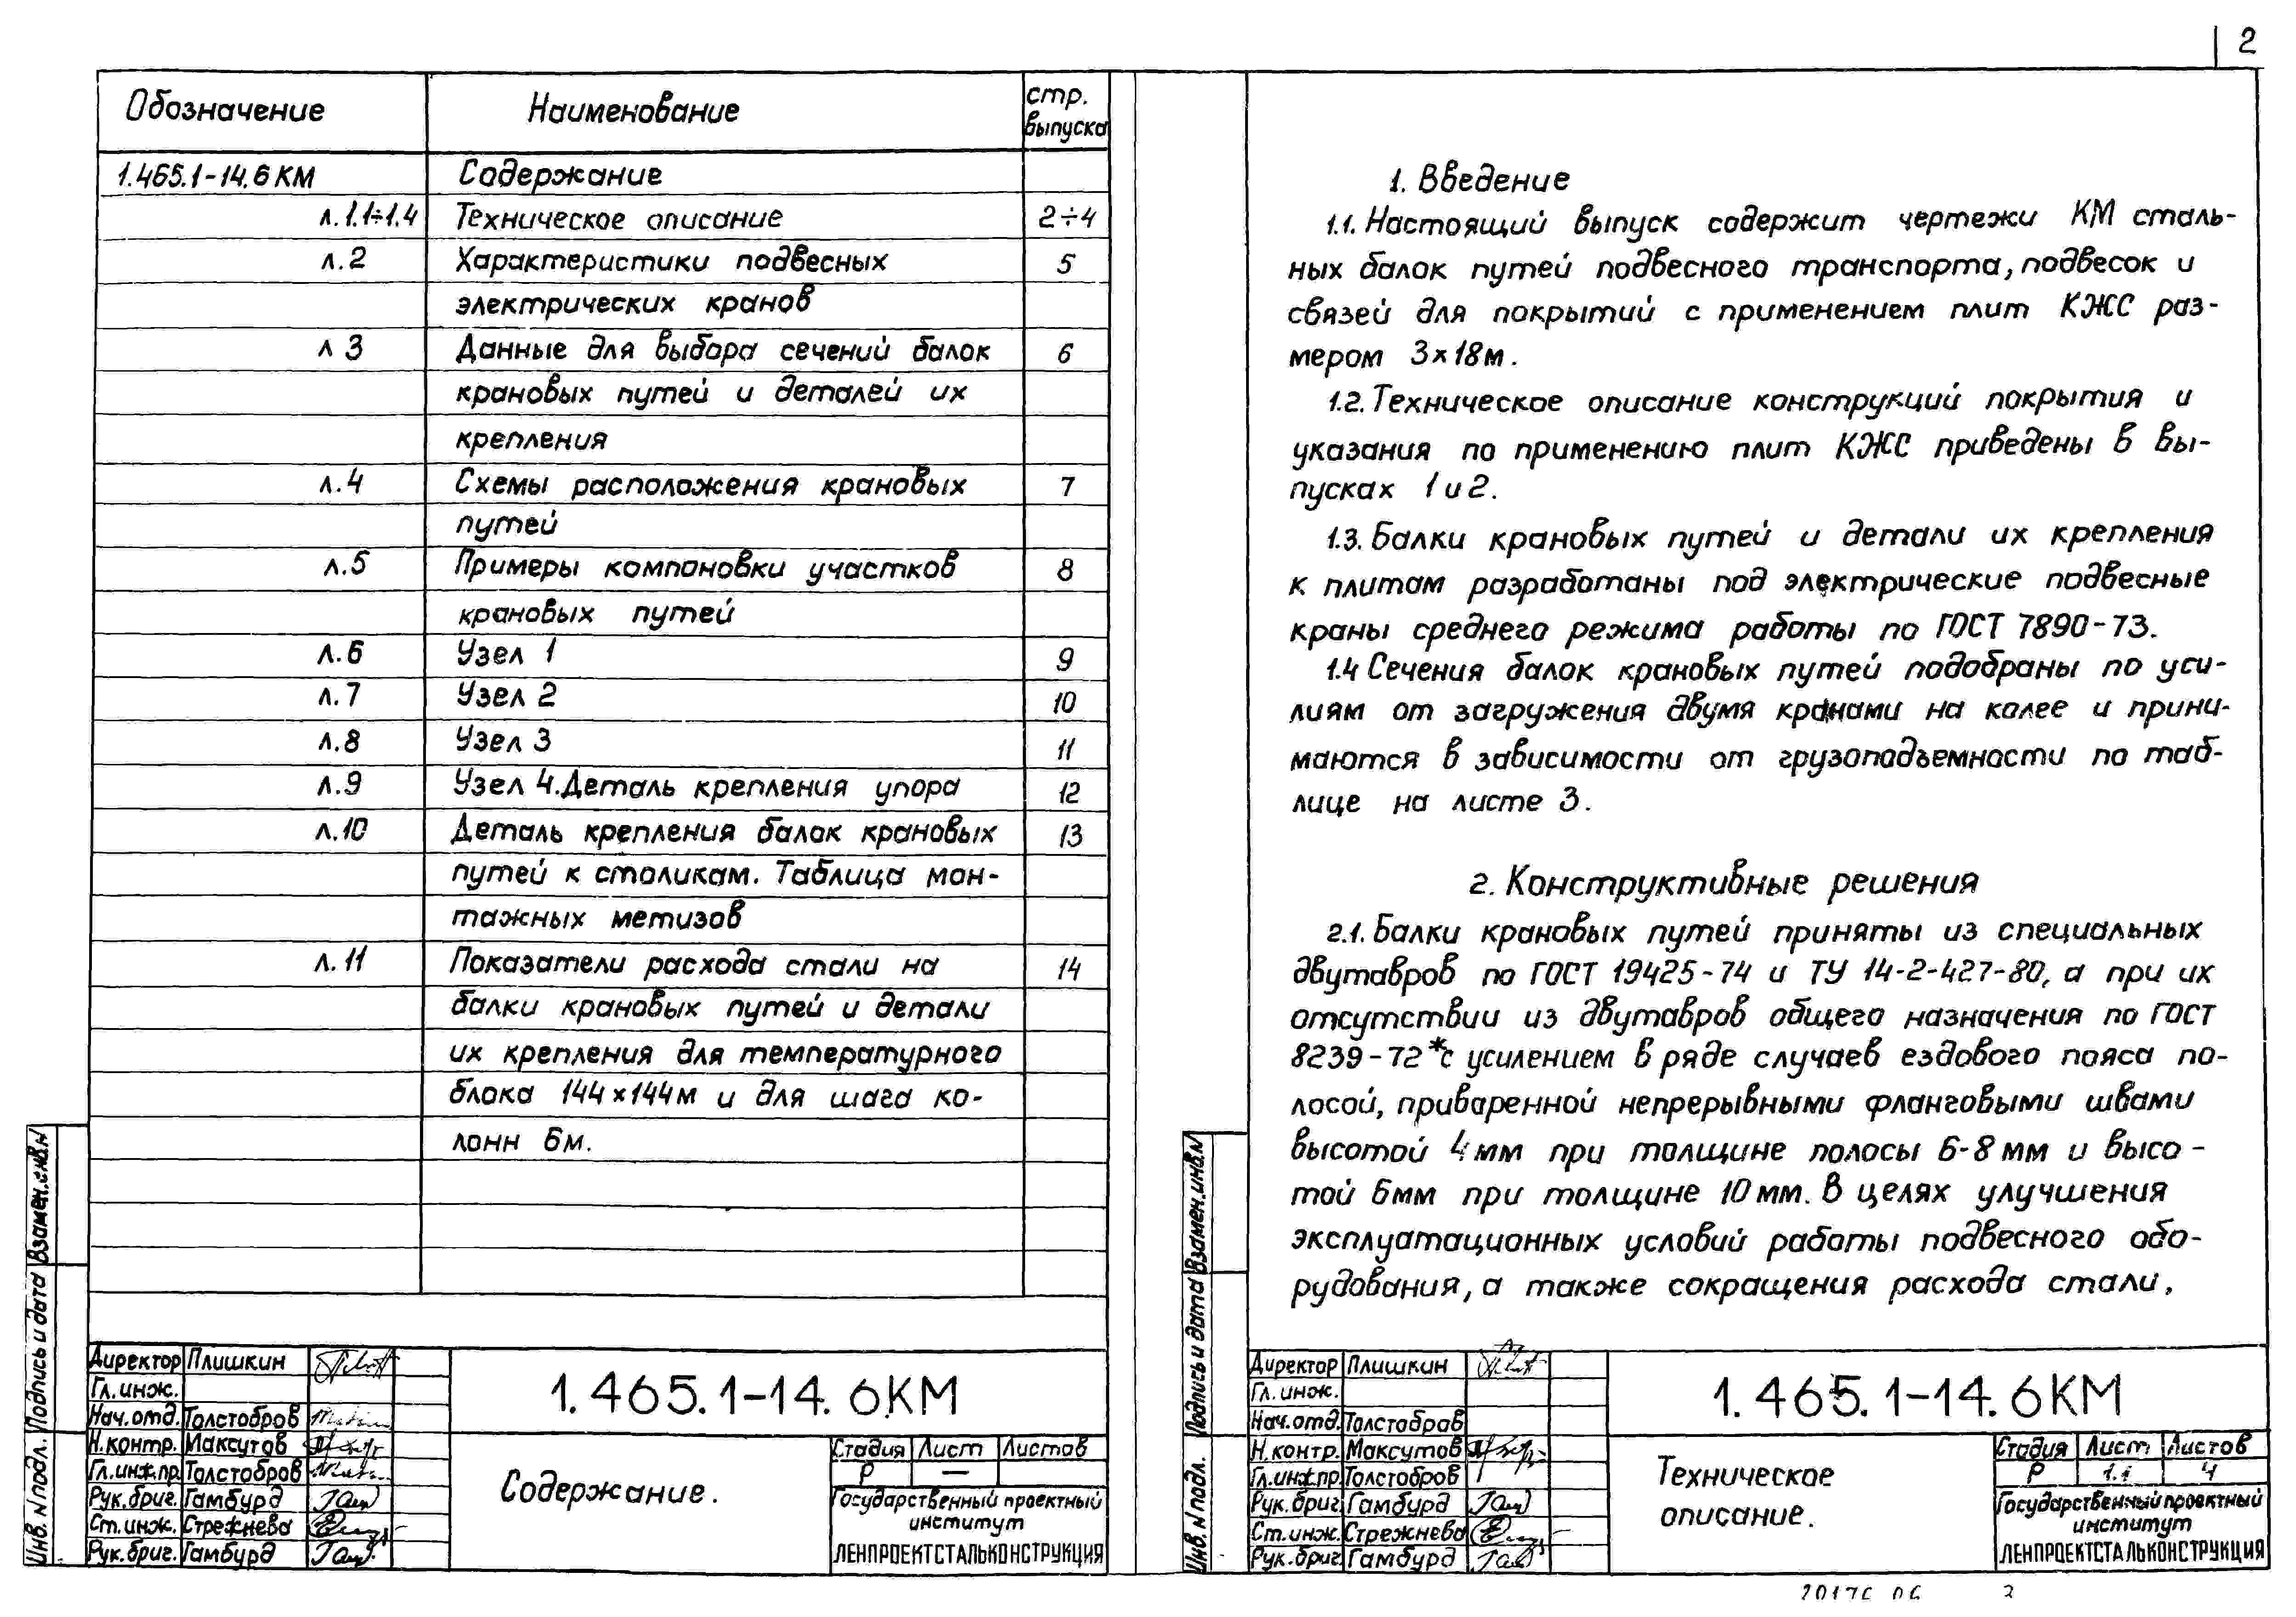 2
Обозначение Наименование стр. выпуска
1.465.1-14.6 КМ Содержание
л.1.1÷1.4 Техническое описание 2÷4
л.2 Характеристики подвесных 5
электрических кранов
л 3 Данные для выбора сечений балок 6
крановых путей и деталей их
крепления
л.4 Схемы расположения крановых 7
путей
л.5 Примеры компановки участков 8
крановых путей
л.6 Узел 1 9
л.7 Узел 2 10
л.8 Узел 3 11
л.9 Узел 4. Деталь крепления упора 12
л.10 Деталь крепления балок крановых 13
путей к столикам. Таблица мон-
тажных метизов
л.11 Показатели расхода стали на 14
балки крановых путей и детали
их крепления для температурного
блока 144×144м и для шага ко-
лонн 6м.
Инв. N подл. Подпись и дата Взамен.инв.N
Директор Плишкин
Гл. инж.
Нач.отд. Толстобров
Н.контр. Максутов
Гл.инж.пр. Толстобров
Рук.бриг. Гамбурд
Ст.инж. Стрежнева
Рук.бриг. Гамбурд
1.465.1-14.6КМ
Содержание.
Стадия Лист Листов
Р —
Государственный проектный
институт
ЛЕНПРОЕКТСТАЛЬКОНСТРУКЦИЯ
1. Введение
1.1. Настоящий выпуск содержит чертежи КМ сталь-
ных балок путей подвесного транспорта, подвесок и
связей для покрытий с применением плит КЖС раз-
мером 3×18м.
1.2. Техническое описание конструкций покрытия и
указания по применению плит КЖС приведены в вы-
пусках 1 и 2.
1.3. Балки крановых путей и детали их крепления
к плитам разработаны под электрические подвесные
краны среднего режима работы по ГОСТ 7890-73.
1.4 Сечения балок крановых путей подобраны по уси-
лиям от загружения двумя кранами на колее и прини-
маются в зависимости от грузоподъемности по таб-
лице на листе 3.
2. Конструктивные решения
2.1. Балки крановых путей приняты из специальных
двутавров по ГОСТ 19425-74 и ТУ 14-2-427-80, а при их
отсутствии из двутавров общего назначения по ГОСТ
8239-72* с усилением в ряде случаев ездового пояса по-
лосой, приваренной непрерывными фланговыми швами
высотой 4 мм при толщине полосы 6-8 мм и высо-
той 6мм при толщине 10 мм. В целях улучшения
эксплуатационных условий работы подвесного обо-
рудования, а также сокращения расхода стали,
Инв. N подл. Подпись и дата Взамен.инв.N
Директор Плишкин
Гл. инж.
Нач.отд. Толстобров
Н.контр. Максутов
Гл.инж.пр. Толстобров
Рук.бриг. Гамбурд
Ст.инж. Стрежнева
Рук.бриг. Гамбурд
1.465.1-14.6КМ
Техническое
описание.
Стадия Лист Листов
Р 1.1 4
Государственный проектный
институт
ЛЕНПРОЕКТСТАЛЬКОНСТРУКЦИЯ